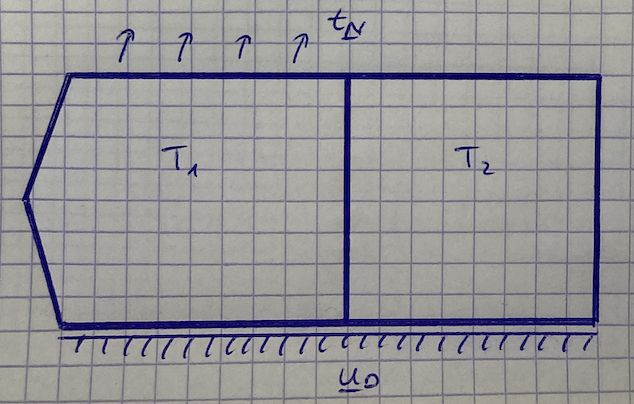 t_N
T_1
T_2
u_D